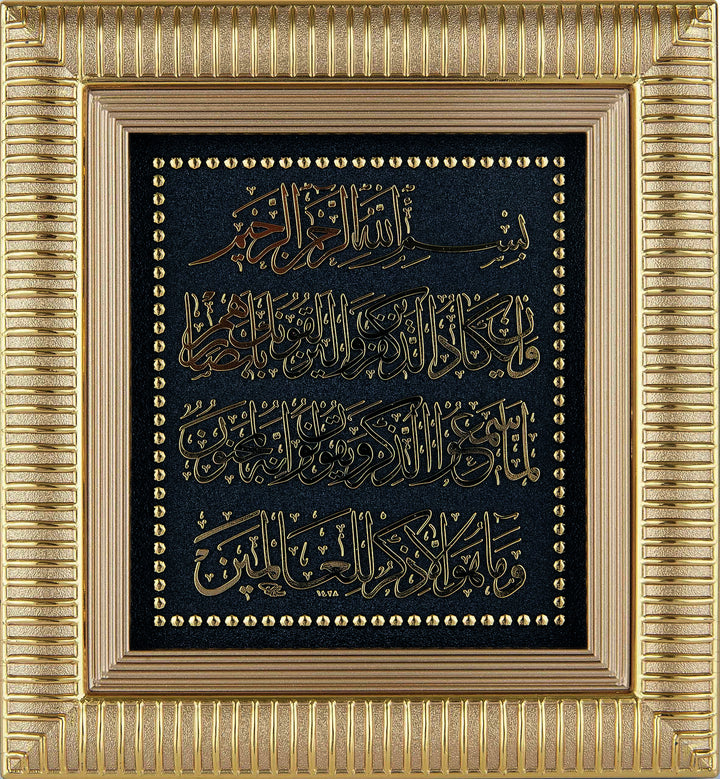 بسم الله الرحمن الرحيم
وإن يكاد الذين كفروا ليزلقونك بأبصارهم
لما سمعوا الذكر ويقولون إنه لمجنون
وما هو إلا ذكر للعالمين